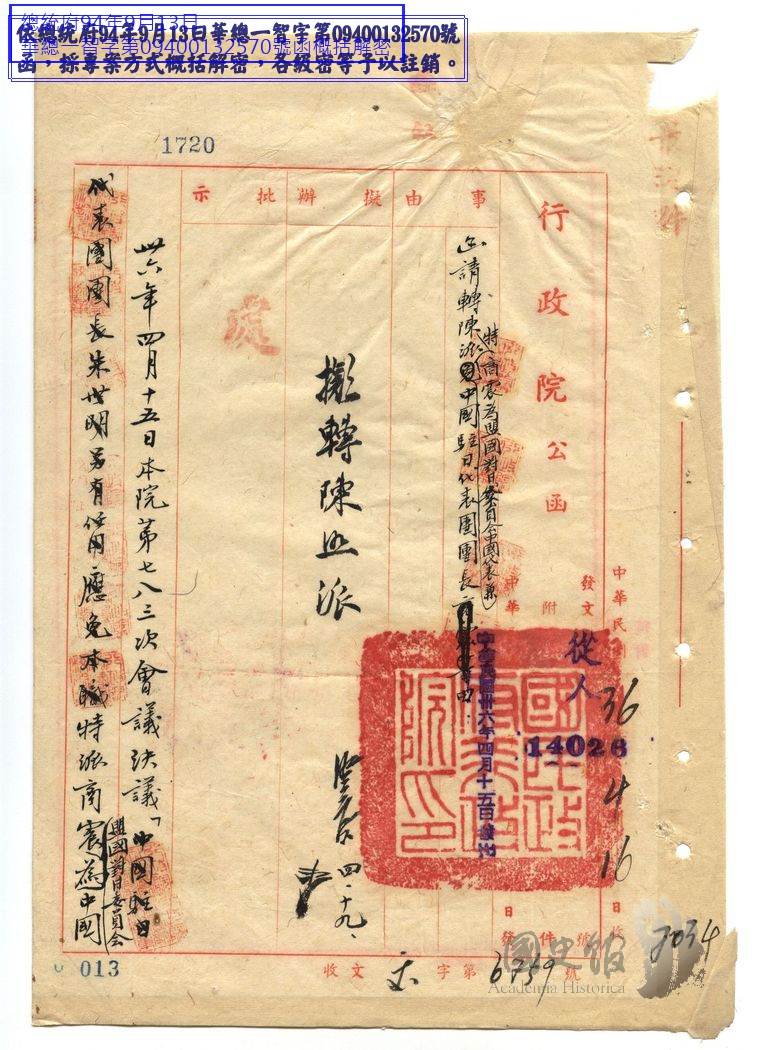 總統府94年9月13日
華總一智字第09400132570號函概括解密
依總統府94年9月13日華總一智字第09400132570號
函，採專案方式概括解密，各級密等予以註銷。
1720
行政院公函
中華民國
36
4
16
發文
附
從人
14026
中華民國卅六年四月十五日發出
國民政府行政院印
事由
函請轉陳派
特商震為盟國對日委員會中國代表兼
中國駐日代表團團長
擬辦
批示
擬轉陳照派
四、十九、
處
卅六年四月十五日本院第七八三次會議決議「中國駐日
代表團團長朱世明另有任用應免本職特派商震為中國
盟國對日委員會
013
收文
字第6759號
7034
國史館
Academia Historica